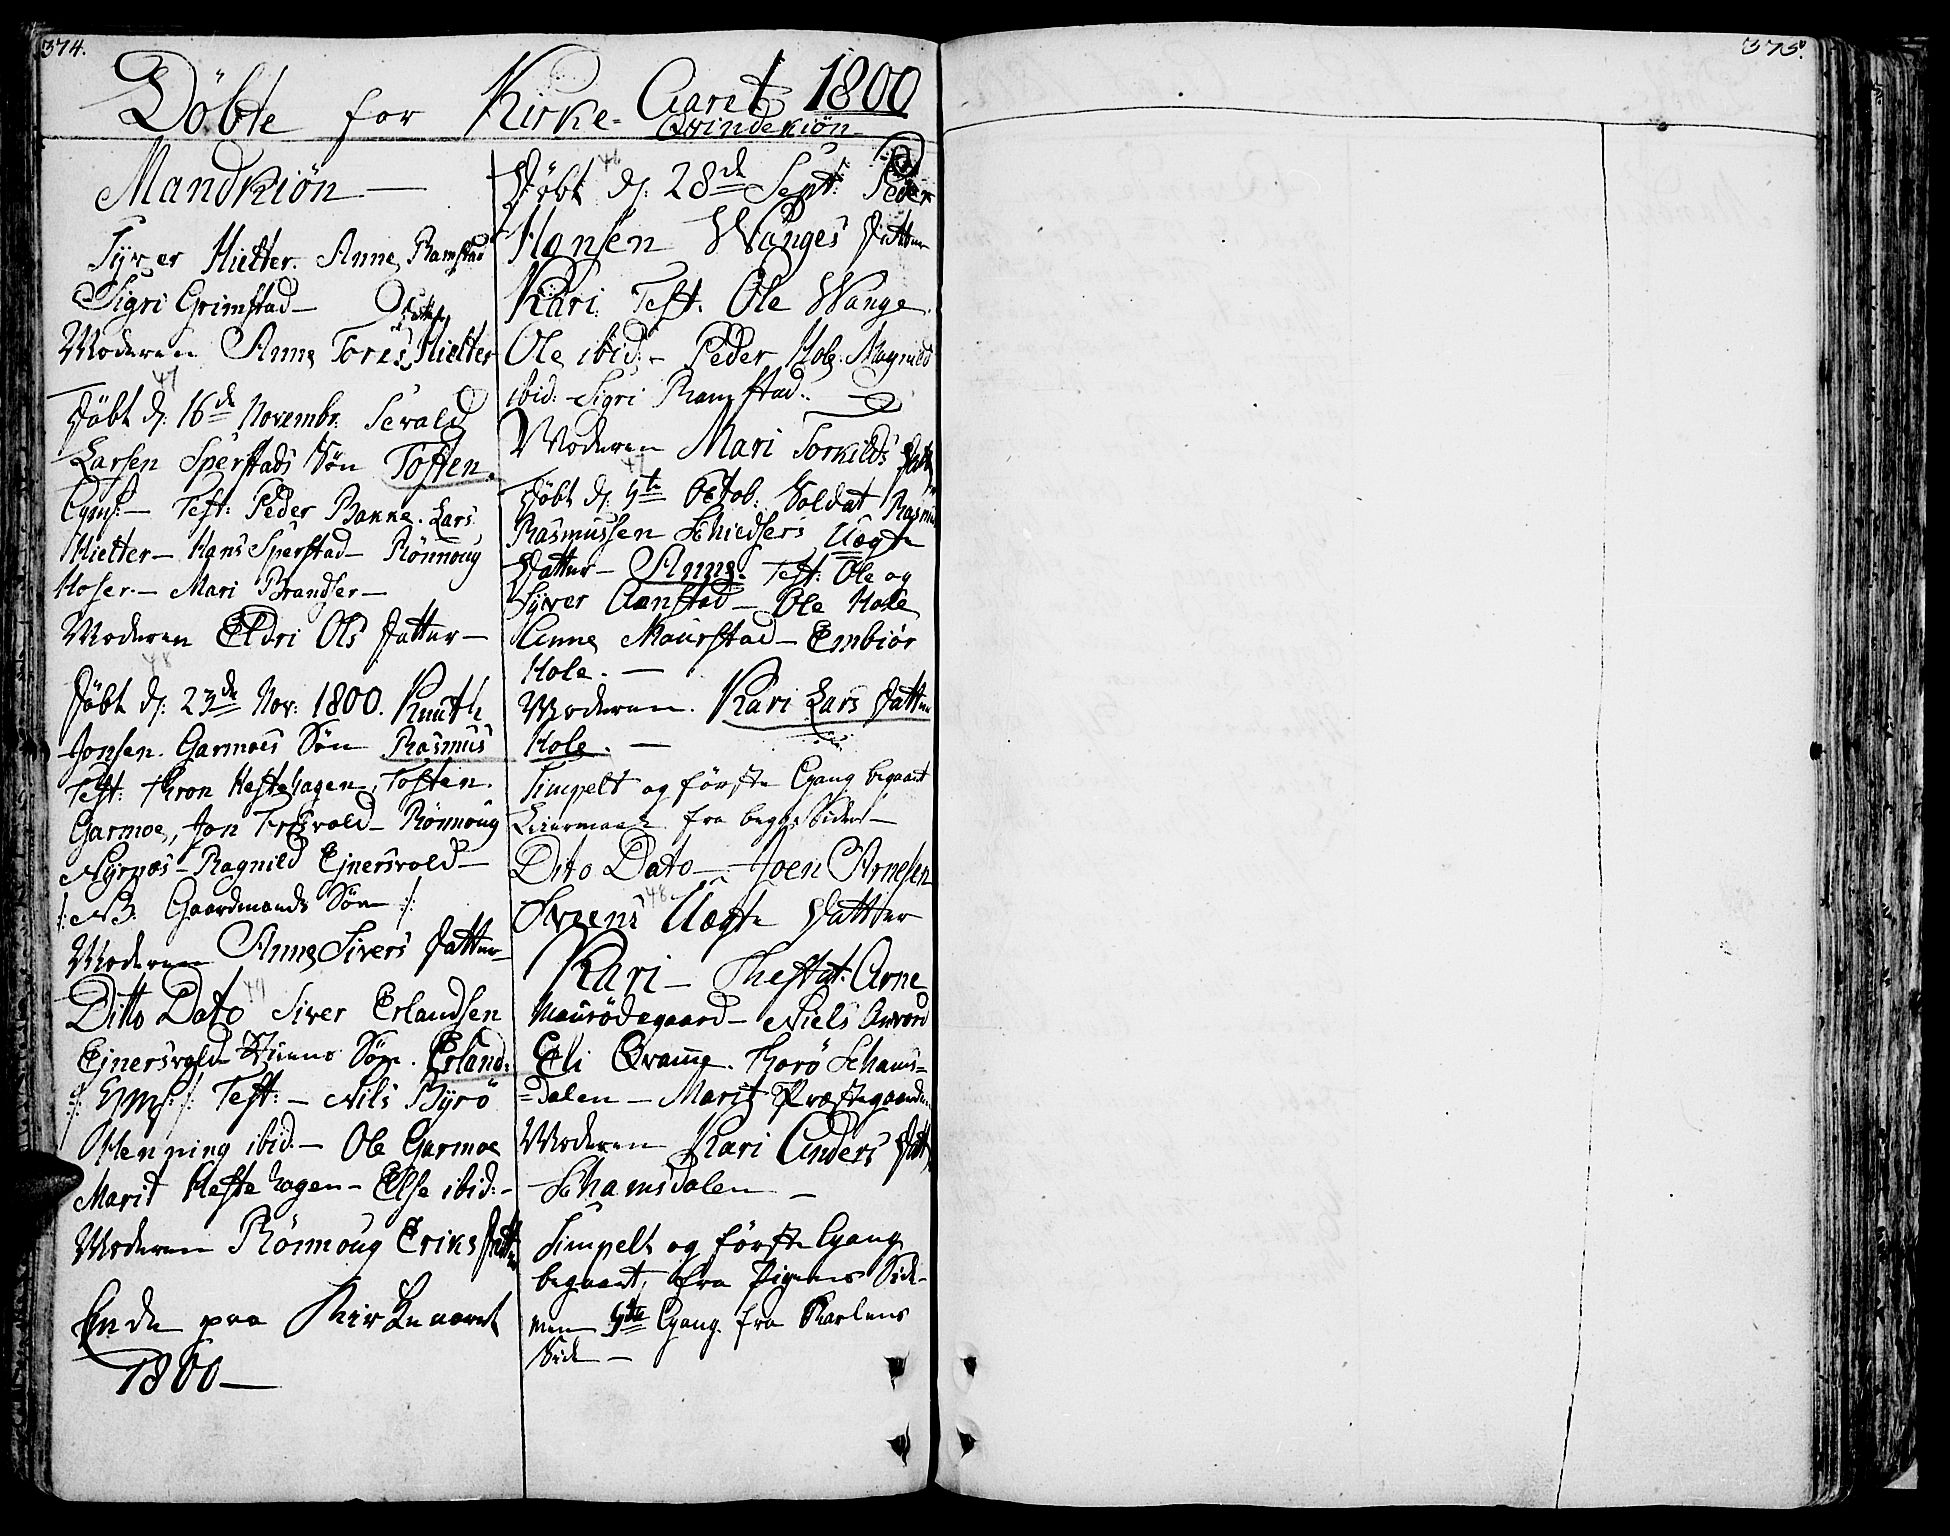 374.
Döbte for Kirke-Aaret 1800
Mandkiön —
Syver Hielter. Anne Ramstad
Sigri Grimstad —
Moderen Anne Tores Datter Hielter
47
Döbt d: 16de Novembr. Sevald
Larsen Sperstads Sön Tosten.
Test: Peder Bakke. Lars
Hielter — Hans Sperstad — Rönnoug
Hoser. — Mari Brandser —
Moderen Eldri Ols Datter —
48
Döbt d: 23de Nov: 1800. Knuth
Jonsen. Garmoes Sön Rasmus
Test: Thron Hestehagen, Tosten.
Garmoe, Jon — Rönnoug
Nyrnæs — Ragnild Ejnersvold —
/: NB. Gaardmands Sön :/
Moderen Anne Sivers Datter —
49
Ditto Dato Siver Erlandsen
Ejnersvold Sön. Erland:
Test: — Nils Byrö
Henning ibid: — Ole Garmoe
Marit Hestehagen — Else ibid: —
Moderen Rönnoug Eriks Datter
Ende paa Kirke aaret
1800 —
Qvindekiön
46
Döbt d: 28de Sept: Peder
Hansen Wanges Datter
Kari. Test. Ole Wange.
Ole ibid: — Peder Hole. Magnild
ibid: — Sigri Ramstad.
Moderen Mari Torkilds Datter
47
Döbt d: 5te Octob: Soldat Rasmus
Rasmussen Schiedsers Uægte
Datter — Anne. Test: Ole og
Syver Aanstad — Ole Hole
Anne Maurstad — Embiör
Hole. —
Moderen. Kari Lars Datter
Hole. —
Simpelt og förste Gang begaaet
Leiermaal fra begge Sider —
Dito Dato — Joen Arnesen
48
Sveens Uægte Datter
Kari — Thestat: Arne
Maurödegaard — Niels
Eli Qvamme. Thorö Schams=
=dalen — Marit Præstegaarden
Moderen Kari Anders Datt
Schamsdalen —
Simpelt og förste Gang
begaaet, fra Pigens Side —
men 5te Gang fra Karlens
Side —
375.